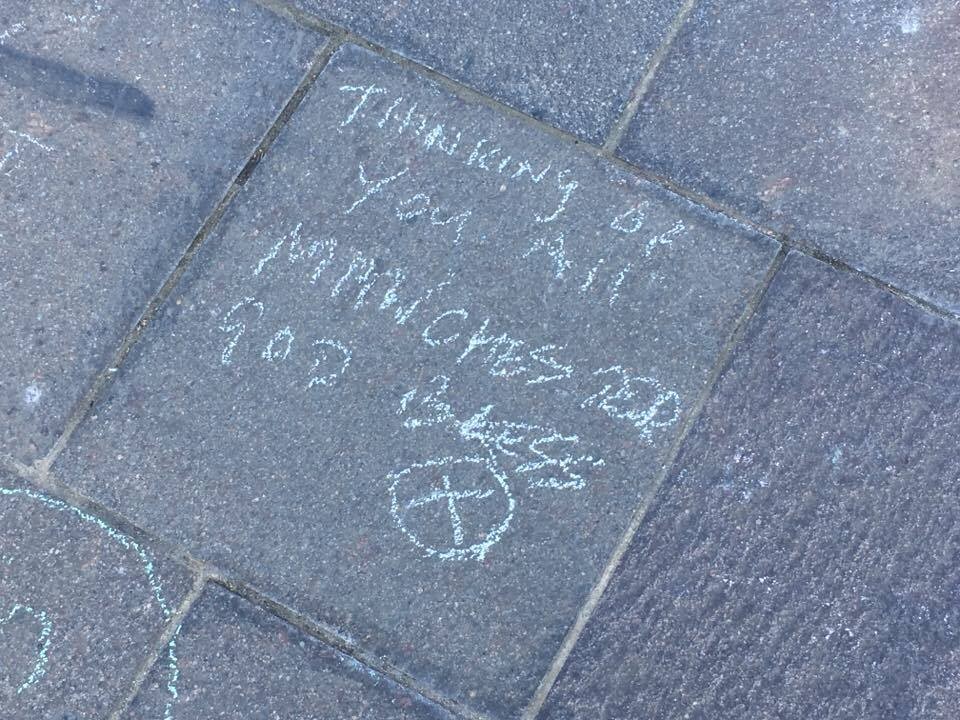 THINKING OF
YOU All
MANCHESTER
GOD BLESS